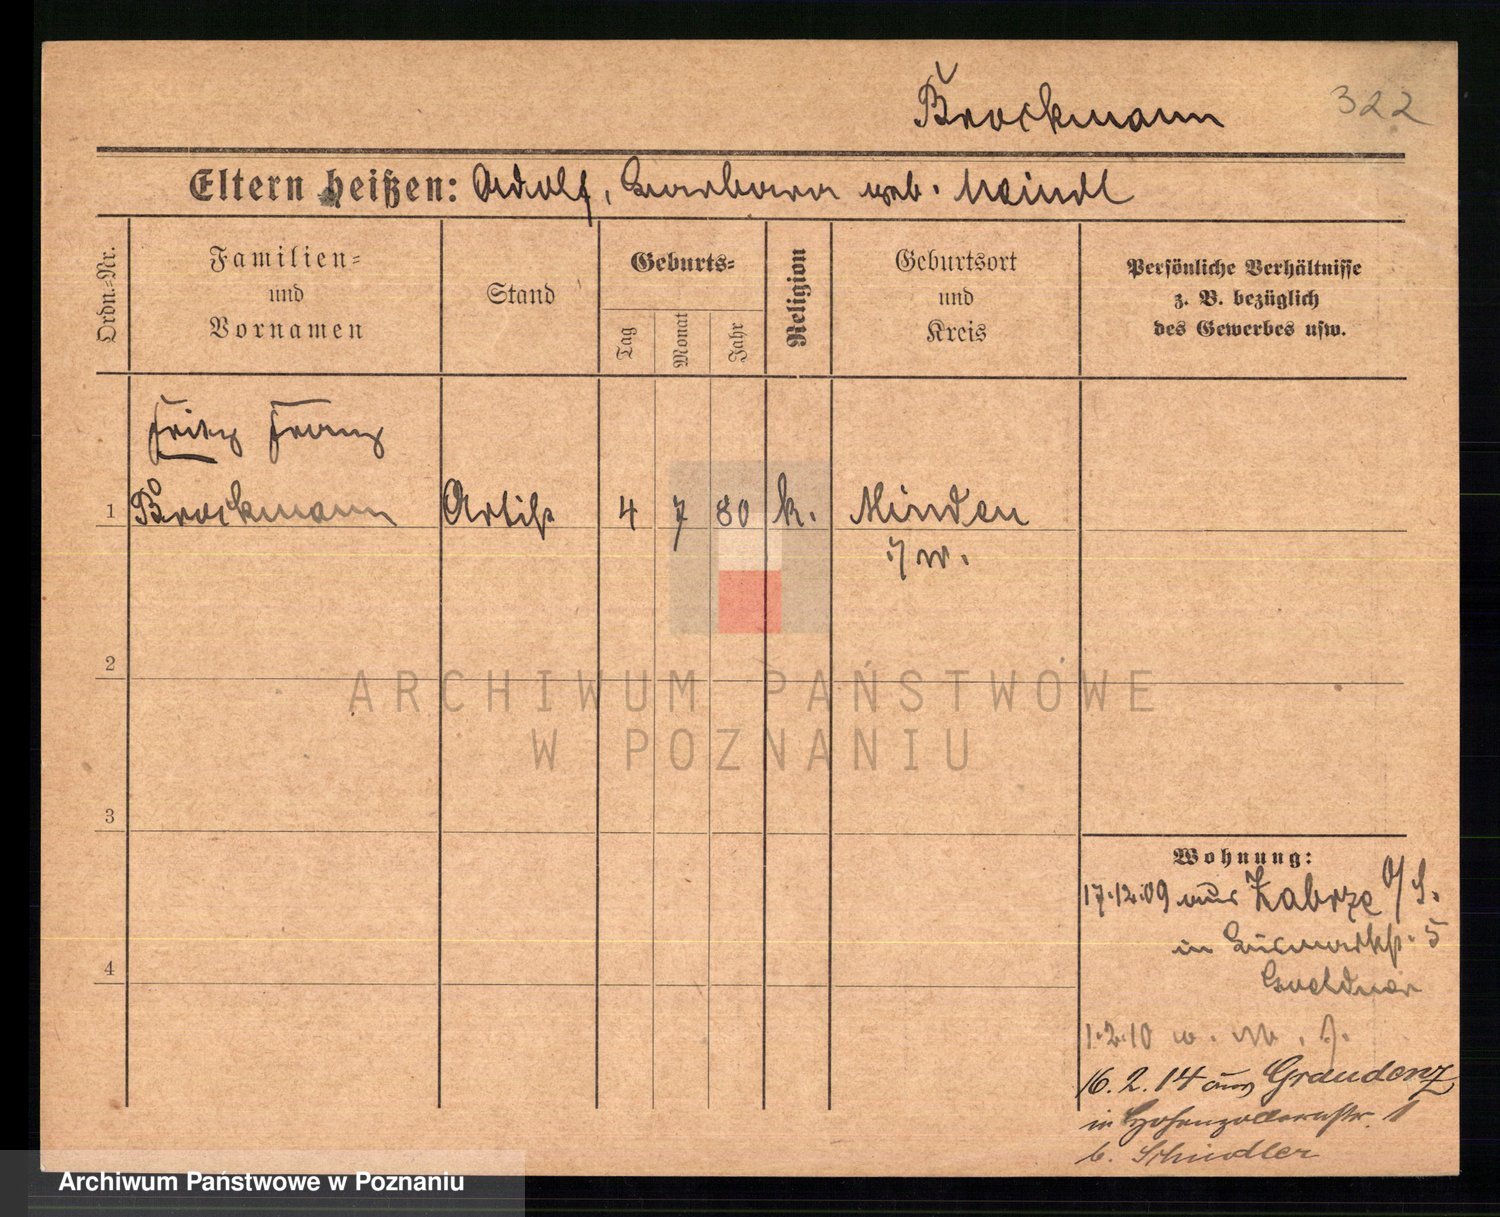 Brockmann
322
Eltern heißen: Adolf, Barbara geb. Meindl
Ordn.-Nr.
Familien-
und
Vornamen
Stand
Geburts-
Tag
Monat
Jahr
Religion
Geburtsort
und
Kreis
Persönliche Verhältnisse
z. B. bezüglich
des Gewerbes usw.
Fritz Franz
1 Brockmann Artist 4 7 80 k. Minden
i/W.
2
ARCHIWUM PAŃSTWOWE
W POZNANIU
3
Wohnung:
17.12.09 aus Zabrze O/S.
in Bismarckstr. 5
4
1.2.10
16.2.14 aus Graudenz
in Hohenzollernstr. 1
b. Schindler
Archiwum Państwowe w Poznaniu